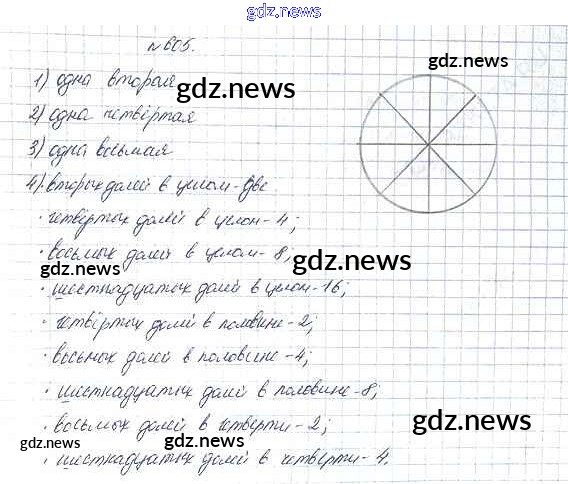 gdz.news
№605.
gdz.news
1) одна вторая
gdz.news
2) одна четвёртая
3) одна восьмая
4) вторых долей в целом - две.
· четвёртых долей в целом - 4;
· восьмых долей в целом - 8;
gdz.news
gdz.news
· шестнадцатых долей в целом - 16;
· четвёртых долей в половине - 2;
· восьмых долей в половине - 4;
· шестнадцатых долей в половине - 8;
· восьмых долей в четверти - 2;
gdz.news
gdz.news
gdz.news
· шестнадцатых долей в четверти - 4.